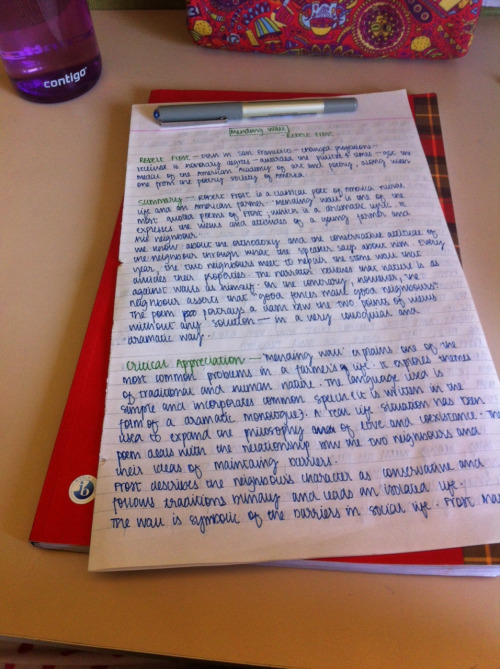 contigo
Mending Wall
Robert Frost
Robert Frost – born in San Francisco – changed professions –
received 14 honorary degrees – awarded the pulitzer 4 times – got the
medal of the American academy of art and poetry, along with
one from the poetry society of America.
Summary – Robert Frost is a classical poet of America rural
life and an American farmer. 'Mending wall' is one of the
most quoted poems of Frost, which is a dramatic lyric. It
expresses the views and attitudes of a young farmer and
his neighbour.
We know about the orthodoxy and the conservative attitude of
the neighbour through what the speaker says about him. Every
year, the two neighbours meet to repair the stone wall that
divides their properties. The narrator believes that nature is as
against walls as himself. On the contrary, however, the
neighbour asserts that "good fences make good neighbours".
The poem portrays a the two points of views
without any solution – in a very colloquial and
dramatic way.
Critical Appreciation – 'Mending wall' explains one of the
most common problems in a farmer's life. It explores themes
of traditional and human nature. The language used is
simple and incorporates common speech (it is written in the
form of a dramatic monologue). A real life situation has been
used to expand the philosophy of love and coexistance. The
poem deals with the relationship the two neighbours and
their ideas of maintaing barriers.
Frost describes the neighbour's character as conservative and
follows traditions blindly and leads an isolated life.
The wall is symbolic of the barriers in social life. Frost